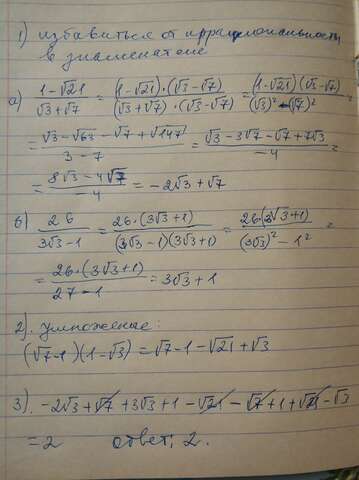 1) избавиться от иррациональности
в знаменателе
а) (1-√21)/(√3+√7) = ((1-√21)·(√3-√7))/((√3+√7)·(√3-√7)) = ((1-√21)(√3-√7))/((√3)²-(√7)²) =
= (√3-√63-√7+√147)/(3-7) = (√3-3√7-√7+7√3)/(-4) =
= (8√3-4√7)/(-4) = -2√3+√7
б) 26/(3√3-1) = (26·(3√3+1))/((3√3-1)(3√3+1)) = (26(3√3+1))/((3√3)²-1²) =
= (26·(3√3+1))/(27-1) = 3√3+1
2). Умножение:
(√7-1)(1-√3) = √7-1-√21+√3
3). -2√3+√7+3√3+1-√21-√7+1+√21-√3
= 2 ответ: 2.